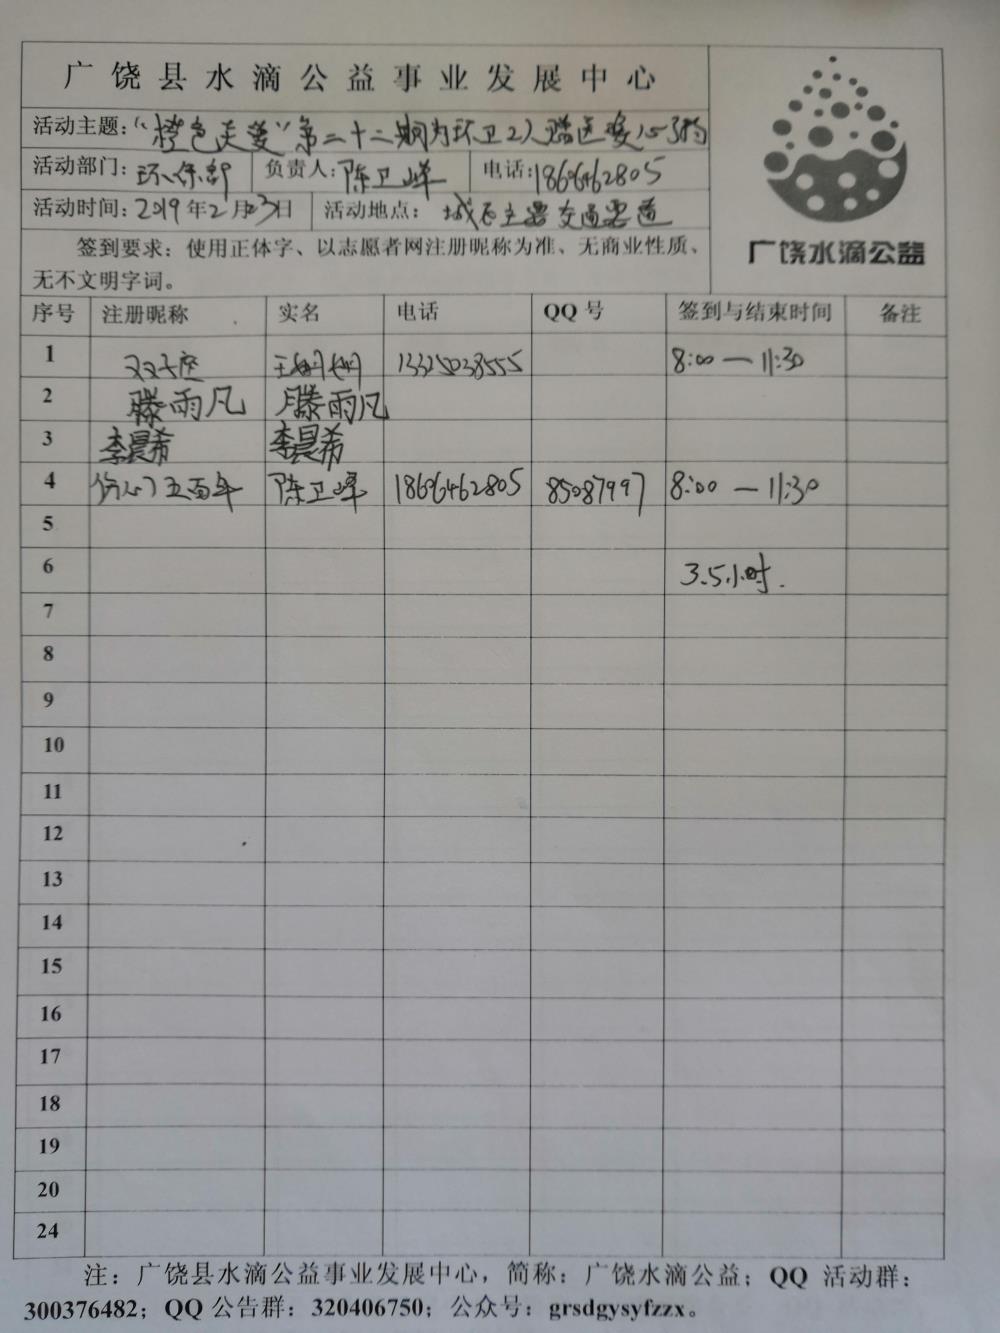 广饶县水滴公益事业发展中心
活动主题:“橙色关爱”第二十二期为环卫工人赠送爱心粥
活动部门:环保部 负责人:陈卫峰 电话:18606462805
活动时间:2019年2月23日 活动地点:城区主要交通要道
广饶水滴公益
签到要求:使用正体字、以志愿者网注册昵称为准、无商业性质、
无不文明字词。
序号 注册昵称 实名 电话 QQ号 签到与结束时间 备注
1 双子座 王姗姗 13325038555 8:00—11:30
2 滕雨凡 滕雨凡
3 李晨希 李晨希
4 伤心五百年 陈卫峰 18606462805 85087997 8:00—11:30
5
6 3.5小时.
7
8
9
10
11
12
13
14
15
16
17
18
19
20
24
注:广饶县水滴公益事业发展中心,简称:广饶水滴公益;QQ 活动群:
300376482;QQ公告群:320406750;公众号:grsdgysyfzzx。